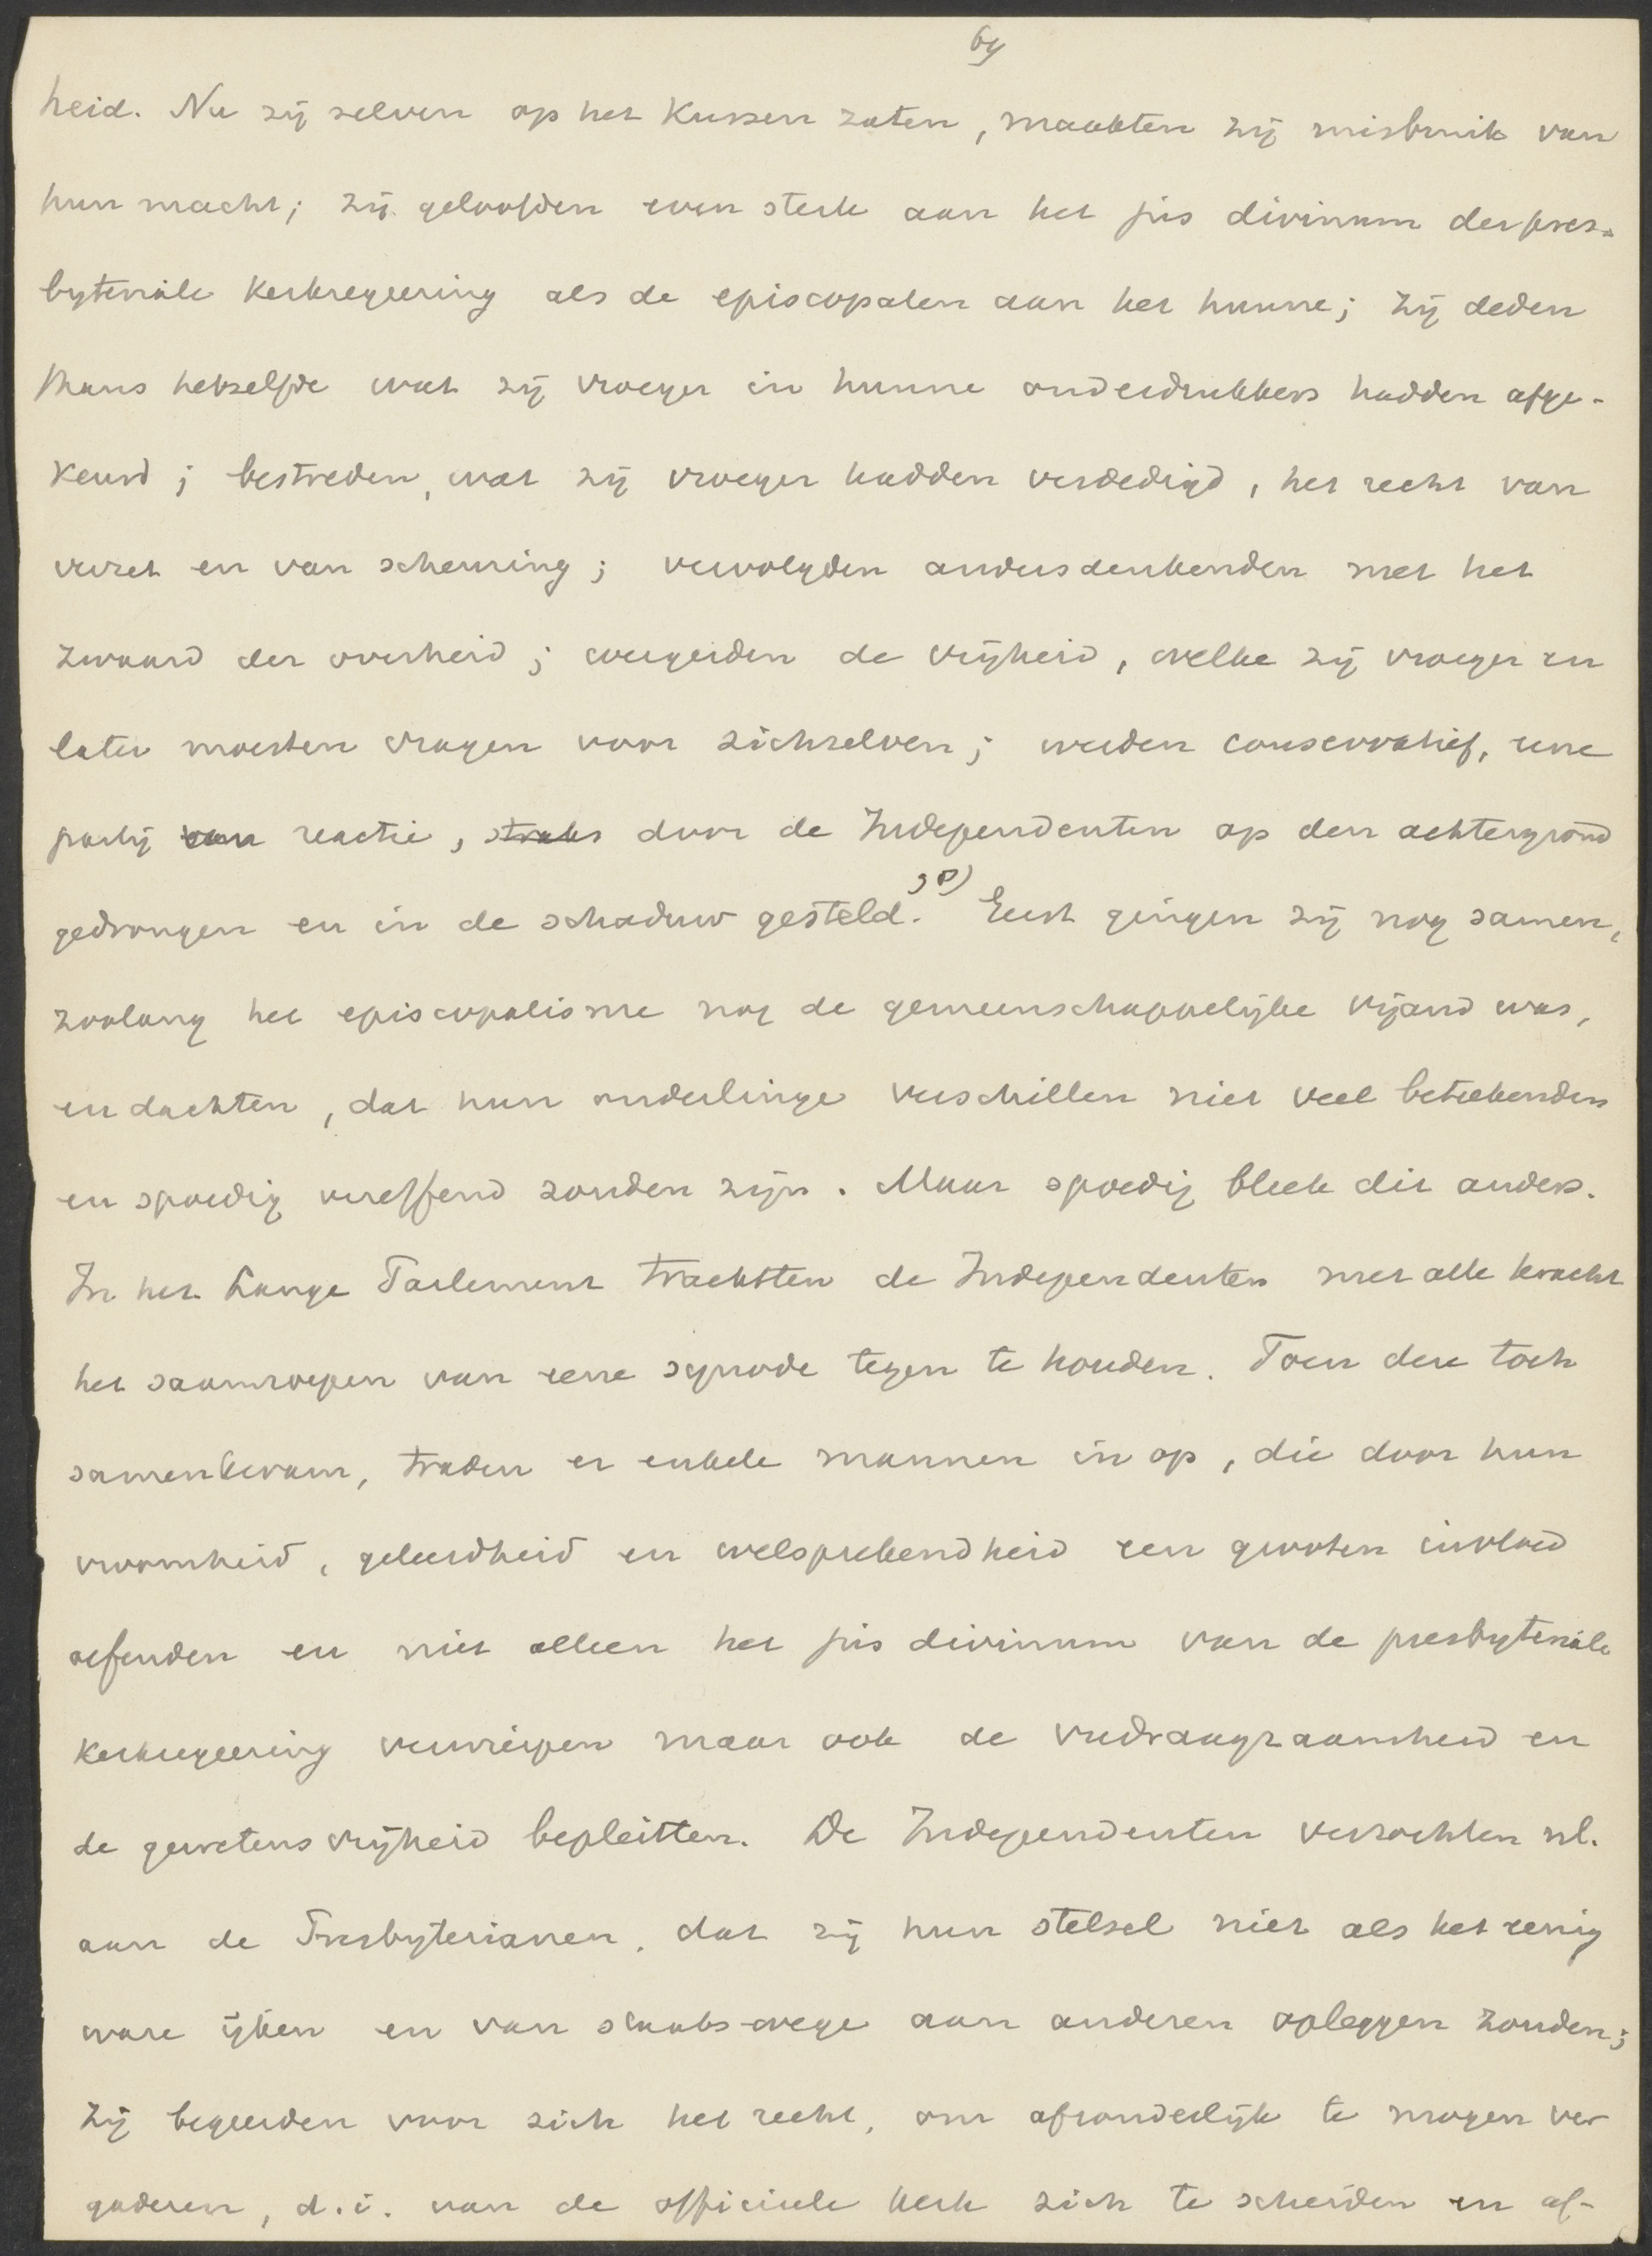 64
heid. Nu zij zelven op het kussen zaten, maakten zij misbruik van
hun macht; zij geloofden even sterk aan het jus divinum der pres-
byteriale kerkregeering als de episcopalen aan het hunne; zij deden
thans hetzelfde wat zij vroeger in hunne onderdrukkers hadden afge-
keurd; bestreden, wat zij vroeger hadden verdedigd, het recht van
verzet en van scheuring; vervolgden andersdenkenden met het
zwaard der overheid; weigerden de vrijheid, welke zij vroeger en
later moesten vragen voor zichzelven; werden conservatief, eene
partij van reactie, straks door de Independenten op den achtergrond
gedrongen en in de schaduw gesteld. Eerst gingen zij nog samen,
zoolang het episcopalisme nog de gemeenschappelijke vijand was,
en dachten, dat hun onderlinge verschillen niet veel beteekenden
en spoedig vereffend zouden zijn. Maar spoedig bleek dit anders.
In het Lange Parlement trachtten de Independenten met alle kracht
het saamroepen van eene synode tegen te houden. Toen deze toch
samenkwam, traden er enkele mannen in op, die door hun
vroomheid, geleerdheid en welsprekendheid een grooten invloed
oefenden en niet alleen het jus divinum van de presbyteriale
kerkregeering verwierpen maar ook de verdraagzaamheid en
de gewetensvrijheid bepleitten. De Independenten verzochten nl.
aan de Presbyterianen, dat zij hun stelsel niet als het eenig
ware ijken en van staatswege aan anderen opleggen zouden;
zij begeerden voor zich het recht, om afzonderlijk te mogen ver
gaderen, d.i. van de officieele kerk zich te scheiden en af-